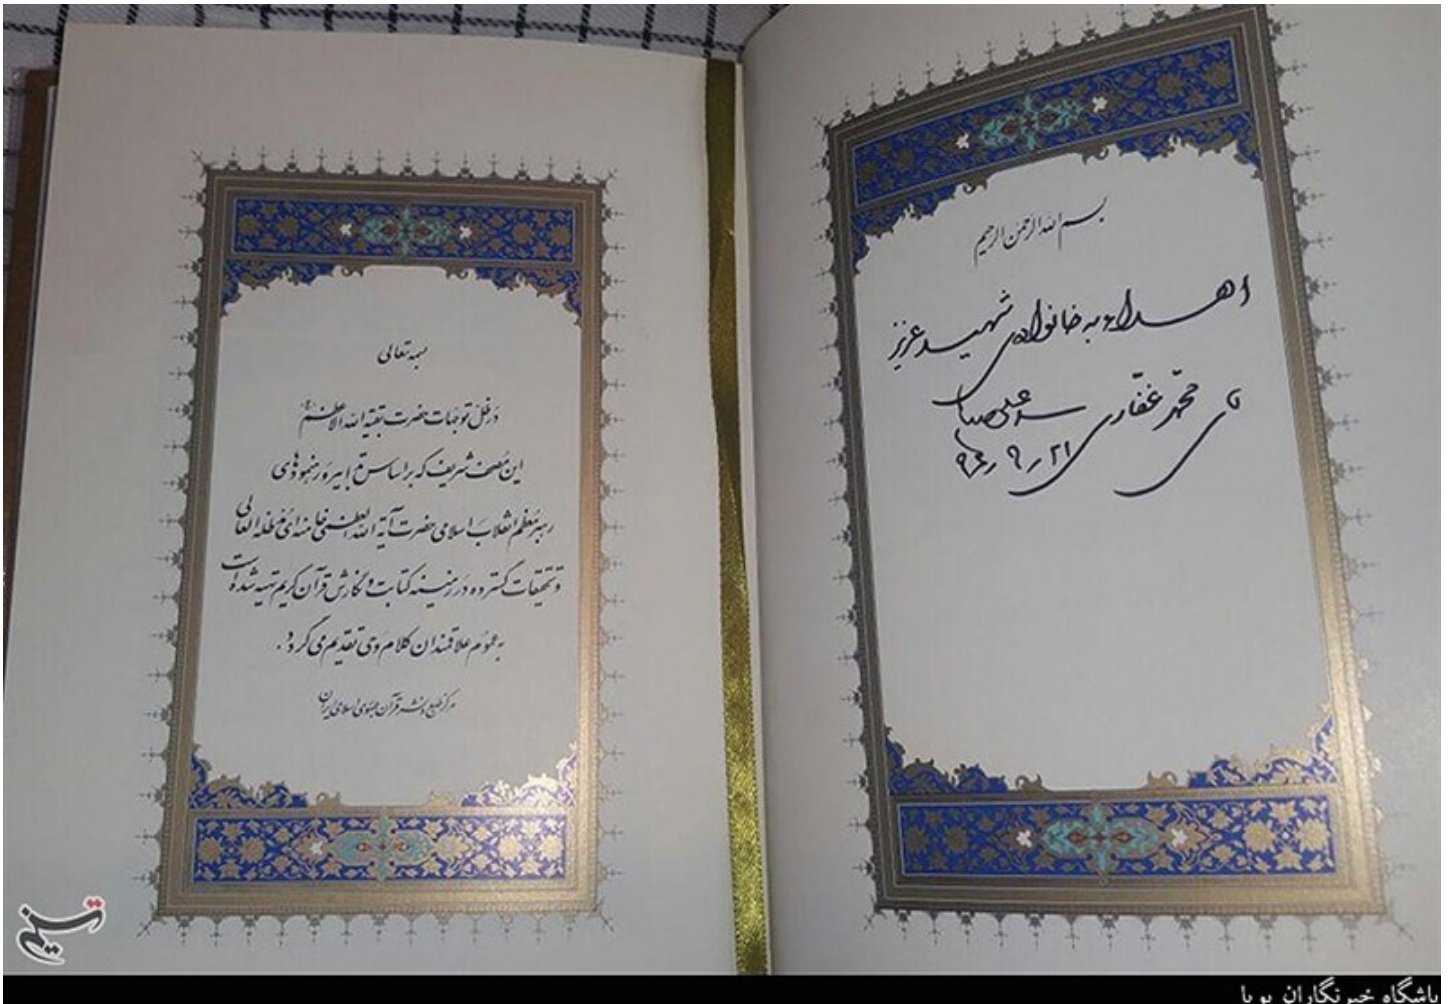 بسم الله الرحمن الرحیم
اهداء به خانواده‌ی شهید عزیز
آقای محمد غفاری سید علی
۹۶٫۹٫۲۱
بسمه تعالی
در ظل توجهات حضرت بقیة الله الاعظم
این مصحف شریف که بر اساس تدابیر و رهنمودهای
رهبر معظم انقلاب اسلامی حضرت آیة الله العظمی خامنه‌ای مدظله العالی
و تحقیقات گسترده در زمینه کتابت و نگارش قرآن کریم تهیه شده است
به عموم علاقمندان کلام وحی تقدیم می‌گردد.
مرکز طبع و نشر قرآن جمهوری اسلامی ایران
تسنیم
باشگاه خبرنگاران پویا